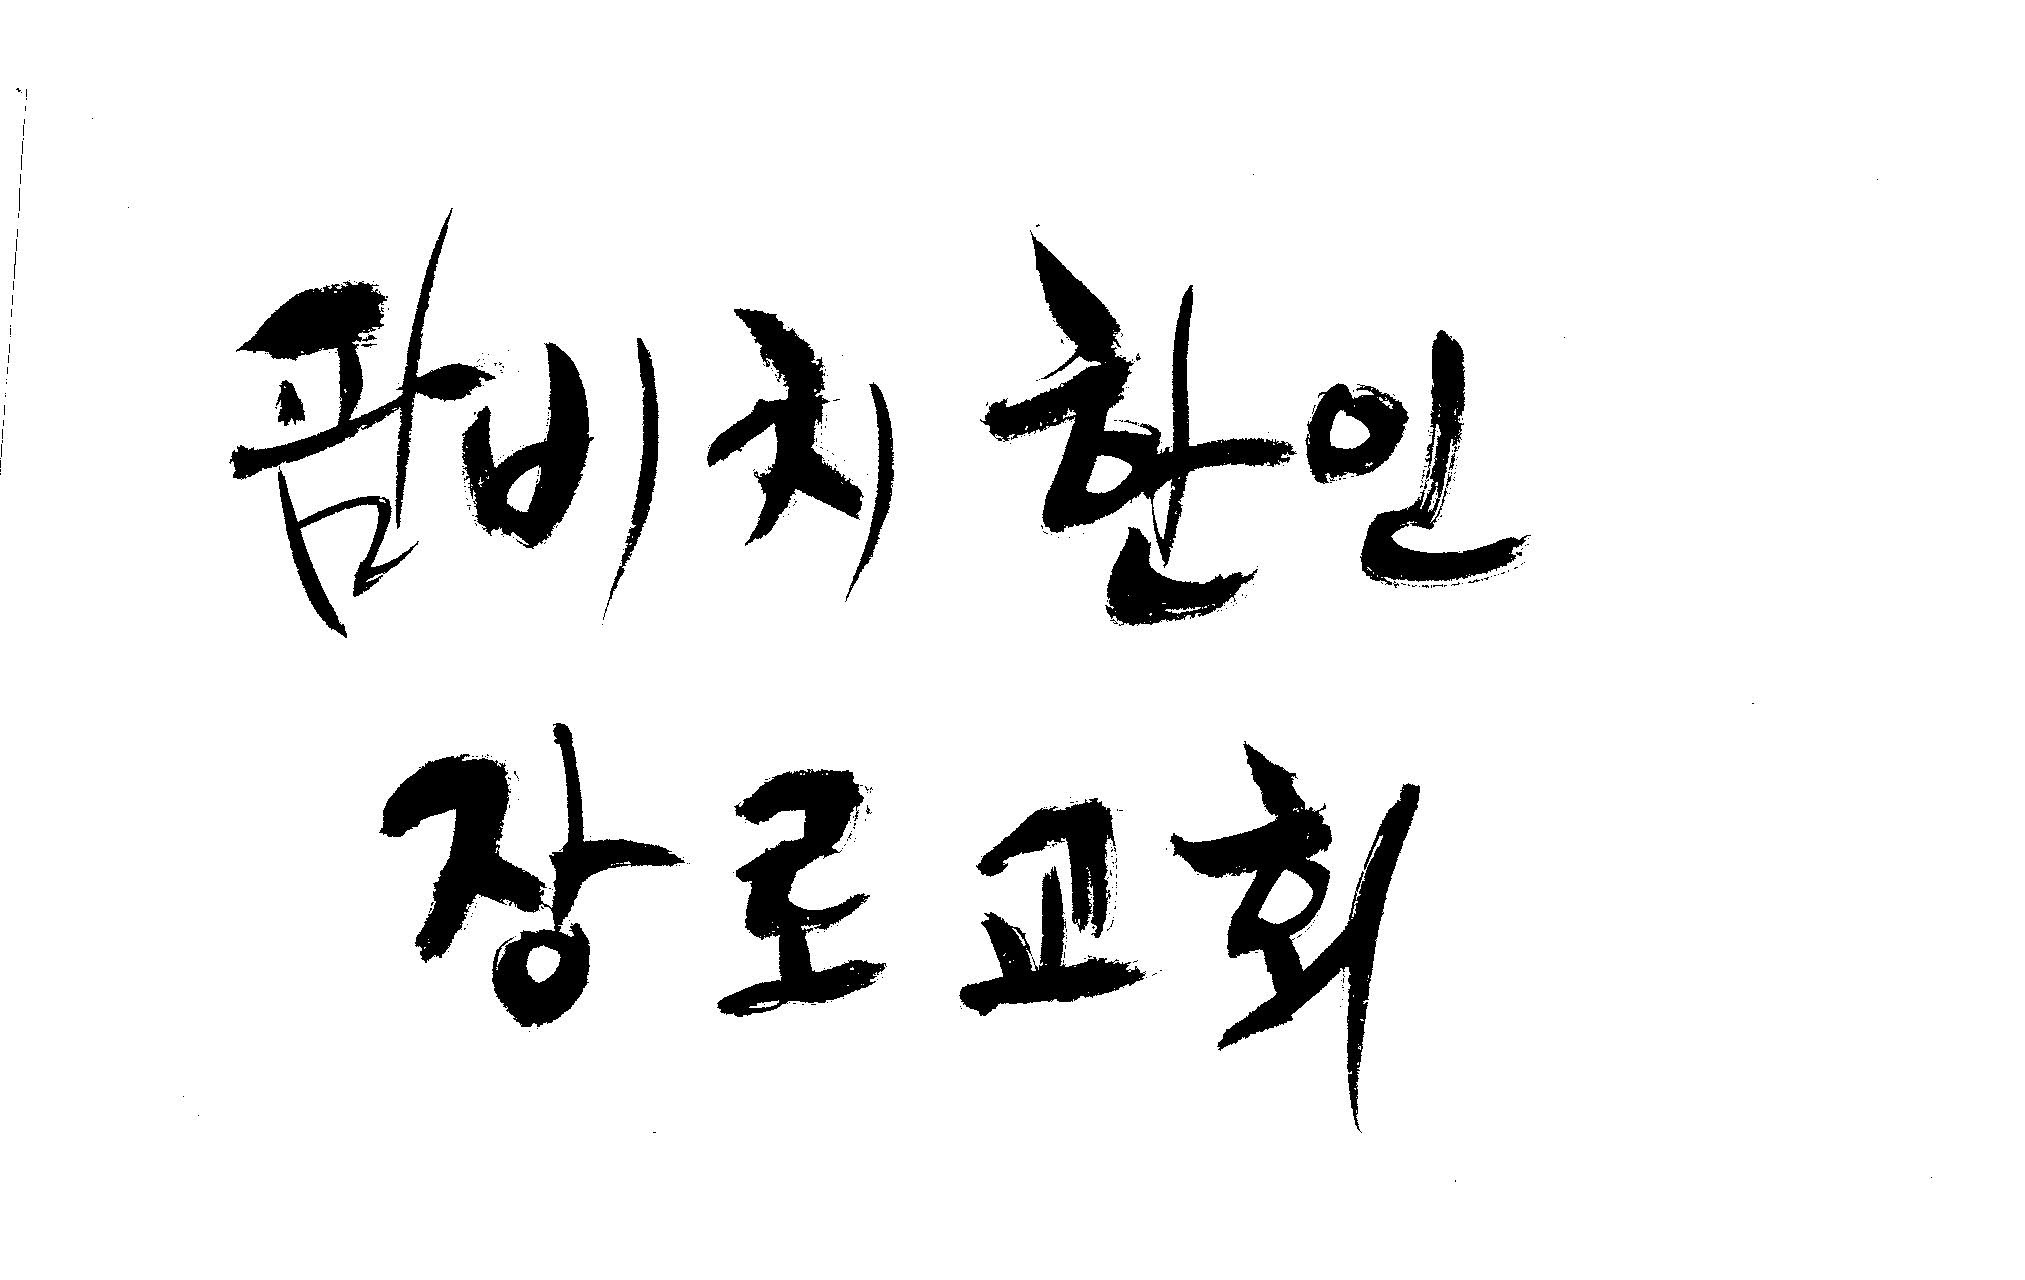 팜비치 한인
장로교회